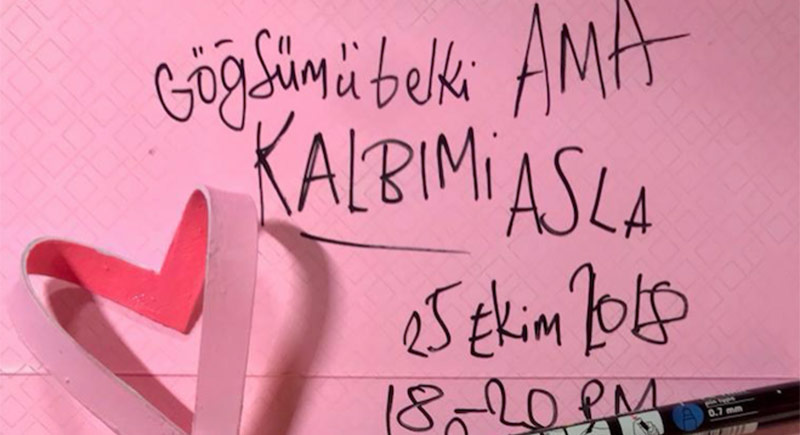 GÖğSümü belki AMA
KALBIMi ASLA
25 Ekim 2018
18-20 PM
0.7 mm